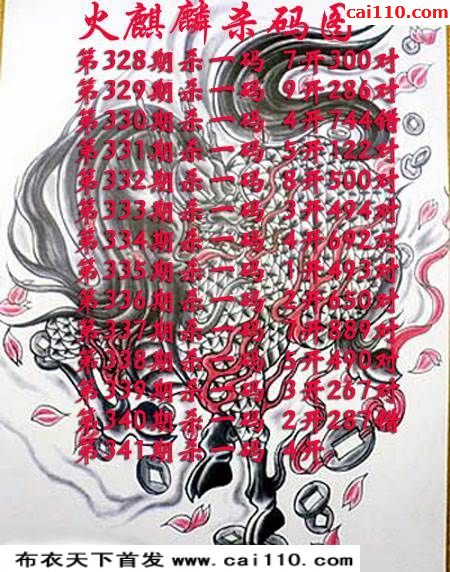 cai110.com
火麒麟杀码图
第328期杀一码 7开300对
第329期杀一码 9开286对
第330期杀一码 4开744错
第331期杀一码 5开122对
第332期杀一码 8开500对
第333期杀一码 3开494对
第334期杀一码 4开692对
第335期杀一码 1开493对
第336期杀一码 2开650对
第337期杀一码 1开889对
第338期杀一码 5开490对
第339期杀一码 3开267对
第340期杀一码 2开287错
第341期杀一码 4开
布衣天下首发 www.cai110.com